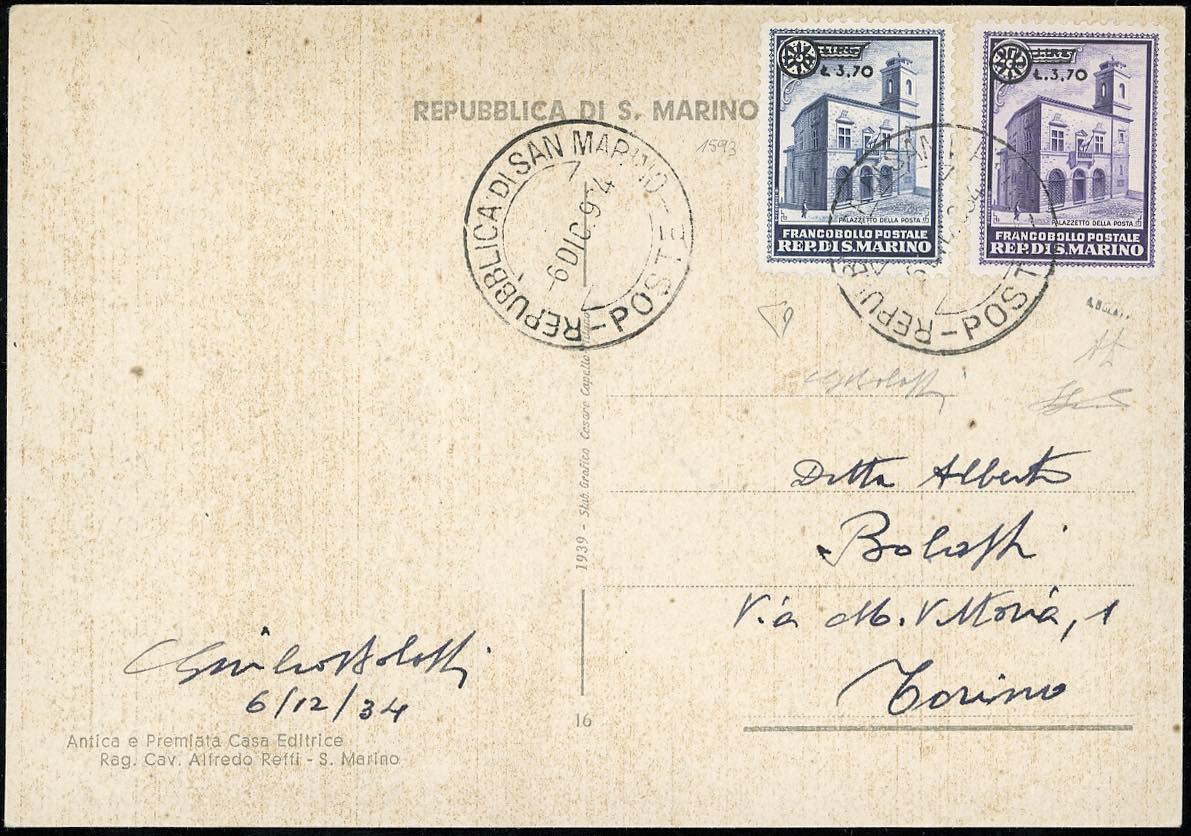 REPUBBLICA DI S. MARINO
1593
REPUBBLICA DI SAN MARINO - POSTE
6 DIC. 934
L 3,70
PALAZZETTO DELLA POSTA
FRANCOBOLLO POSTALE
REP. DI S. MARINO
L. 3,70
PALAZZETTO DELLA POSTA
FRANCOBOLLO POSTALE
REP. DI S. MARINO
REPU
- POSTE
1939 - Stab. Grafico Cesare Capello
Ditta Alberto
Bolaffi
Via M. Vittoria, 1
Torino
Giulio Bolaffi
6/12/34
Antica e Premiata Casa Editrice
Rag. Cav. Alfredo Reffi - S. Marino
16